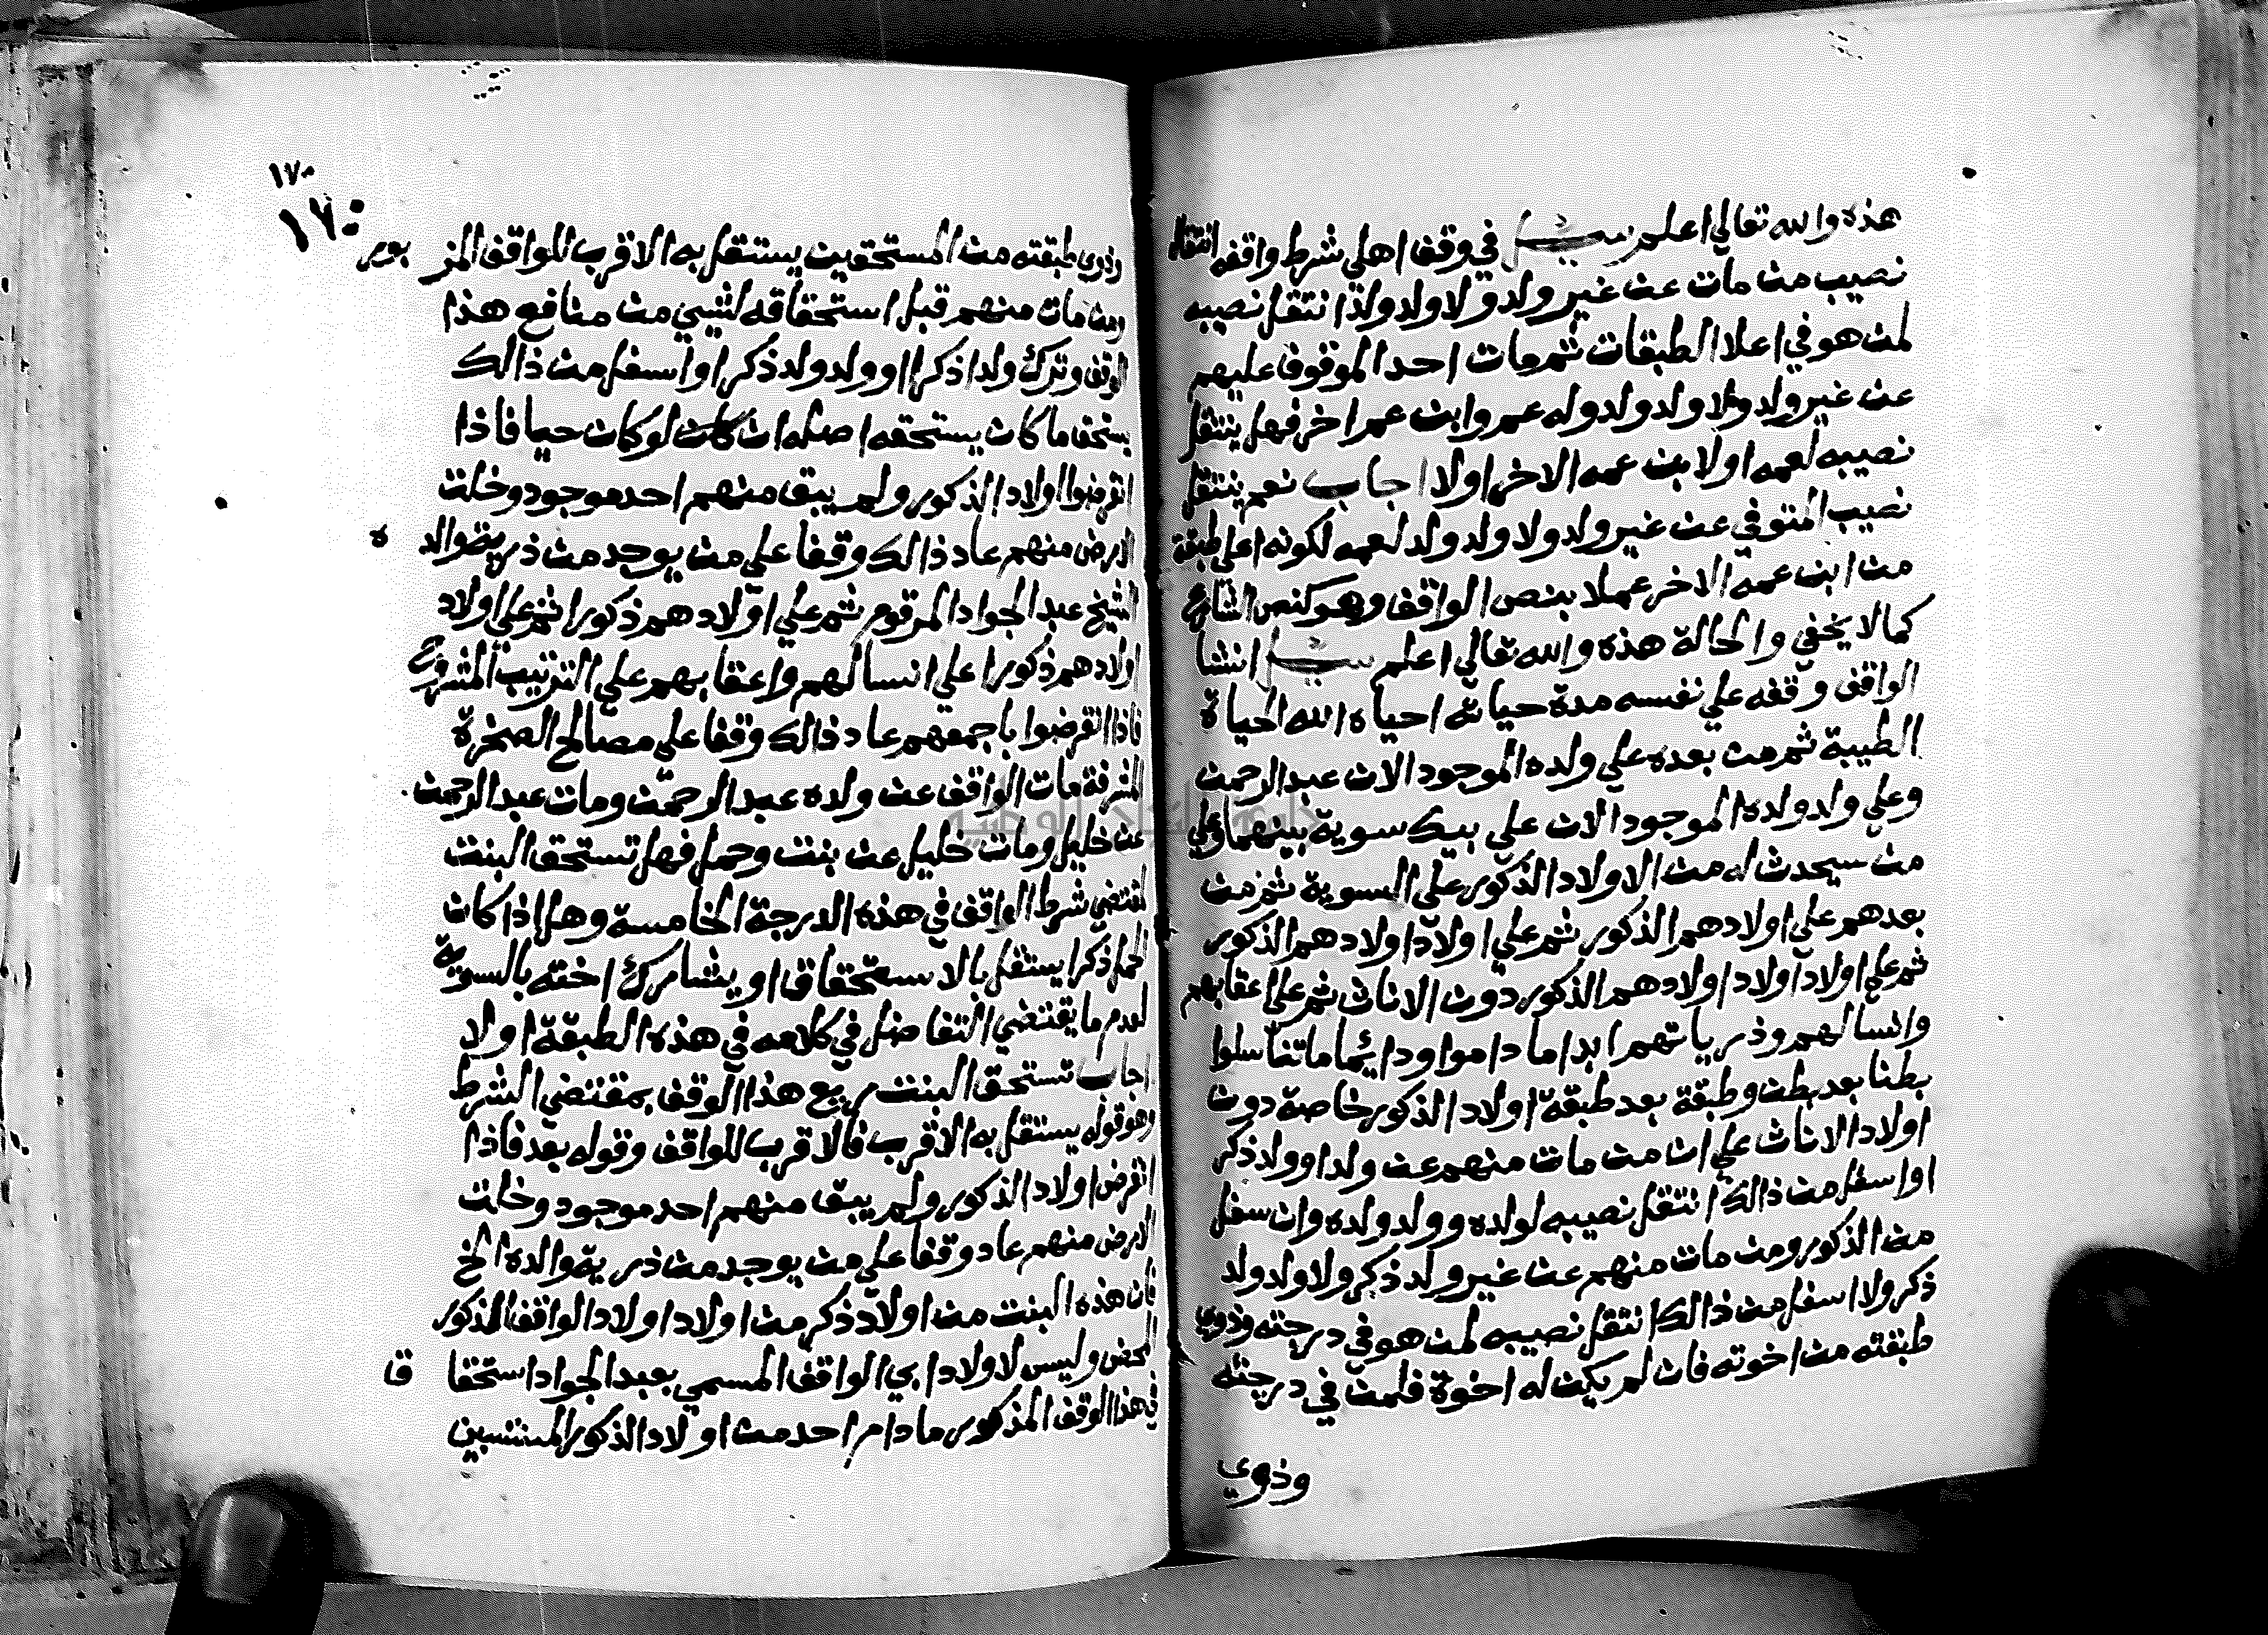 هذه والله تعالي اعلم سئل في وقف اهلي شرط واقفه انتقال
نصيب من مات عن غير ولد ولا ولد ولد انتقل نصيبه
لمن هو في اعلا الطبقات ثم مات احد الموقوف عليهم
عن غير ولد ولا ولد ولد وله عم وابن عم اخر فهل ينتقل
نصيبه لعمه او لابن عمه الاخر او لا اجاب نعم ينتقل
نصيب المتوفي عن غير ولد ولا ولد ولد لعمه لكونه اعلي طبقة
من ابن عمه الاخر عملا بنص الواقف وهو كنص الشارع
كما لا يخفي والحالة هذه والله تعالي اعلم سئل انشا
الواقف وقفه علي نفسه مدة حياته احياه الله الحياة
الطيبة ثم من بعده علي ولده الموجود الان عبد الرحمن
وعلي ولد ولده الموجود الان علي بيك سوية بينهما وعلي
من سيحدث له من الاولاد الذكور علي السوية ثم من
بعدهم علي اولادهم الذكور ثم علي اولاد اولادهم الذكور
ثم علي اولاد اولاد اولادهم الذكور دون الاناث ثم علي اعقابهم
وانسالهم وذرياتهم ابدا ما داموا ودايما ما تناسلوا
بطنا بعد بطن وطبقة بعد طبقة اولاد الذكور خاصة دون
اولاد الاناث علي ان من مات منهم عن ولد او ولد ذكر
او اسفل من ذالك انتقل نصيبه لولده وولد ولده وان سفل
من الذكور ومن مات منهم عن غير ولد ذكر ولا ولد ولد
ذكر ولا اسفل من ذالك انتقل نصيبه لمن هو في درجته وذوي
طبقته من اخوته فان لم يكن له اخوة فلمن في درجته
وذوي
١٧٠
١٧٠
وذوي طبقته من المستحقين يستقل به الاقرب للواقف المزبور
ومن مات منهم قبل استحقاقه لشيي من منافع هذا
الوقف وترك ولدا ذكرا او ولد ولد ذكر او اسفل من ذالك
يستحق ما كان يستحقه اصله ان كان لو كان حيا فاذا
انقرضوا اولاد الذكور ولم يبق منهم احد موجود وخلت
الارض منهم عاد ذالك وقفا علي من يوجد من ذرية والده
الشيخ عبد الجواد المرقوم ثم علي اولادهم ذكورا ثم علي اولاد
اولادهم ذكورا علي انسالهم واعقابهم علي الترتيب المشروع
فاذا انقرضوا باجمعهم عاد ذالك وقفا علي مصالح الصخرة
المشرفة مات الواقف عن ولده عبد الرحمن ومات عبد الرحمن
عن خليل ومات خليل عن بنت وحمل فهل تستحق البنت
لمقتضي شرط الواقف في هذه الدرجة الخامسة وهل اذا كان
الحمل ذكرا يستقل بالاستحقاق او يشارك اخته بالسوية
لعدم ما يقتضي التفاضل في كلامه في هذه الطبقة او لا
اجاب تستحق البنت ريع هذا الوقف بمقتضي الشرط
وهو قوله يستقل به الاقرب فالاقرب للواقف وقوله بعد فاذا
انقرض اولاد الذكور ولم يبق منهم احد موجود وخلت
الارض منهم عاد وقفا علي من يوجد من ذرية والده الخ
فان هذه البنت من اولاد ذكر من اولاد اولاد الواقف المذكور
المحض وليس لاولاد ابي الواقف المسمي بعبد الجواد استحقاق
في هذا الوقف المذكور ما دام احد من اولاد الذكور المنتسبين